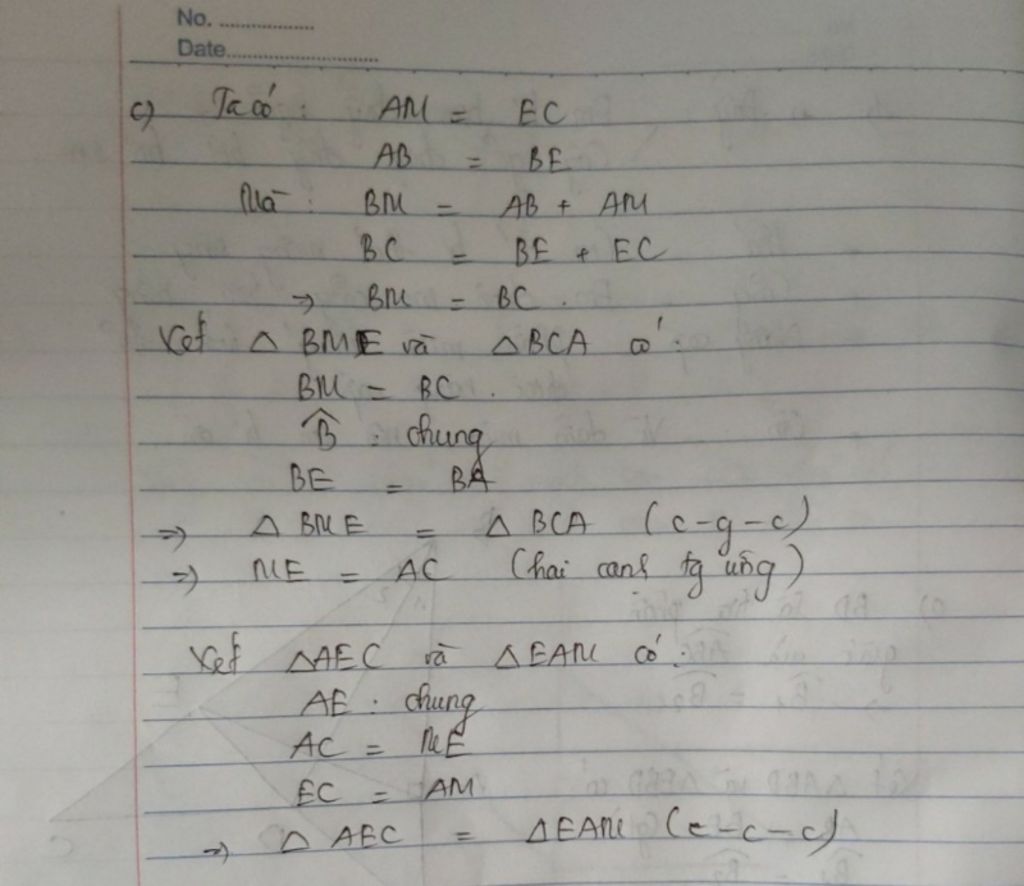 No. ..................
Date..............................
c) Ta có : AM = EC
AB = BE
Mà : BM = AB + AM
BC = BE + EC
=> BM = BC .
Xét △ BME và △BCA có :
BM = BC .
B̂ : chung
BE = BA
=> △ BME = △ BCA (c-g-c)
=> ME = AC (hai cạnh tg ứng)
Xét △AEC và △EAM có :
AE : chung
AC = ME
EC = AM
=> △ AEC = △EAM (c-c-c)